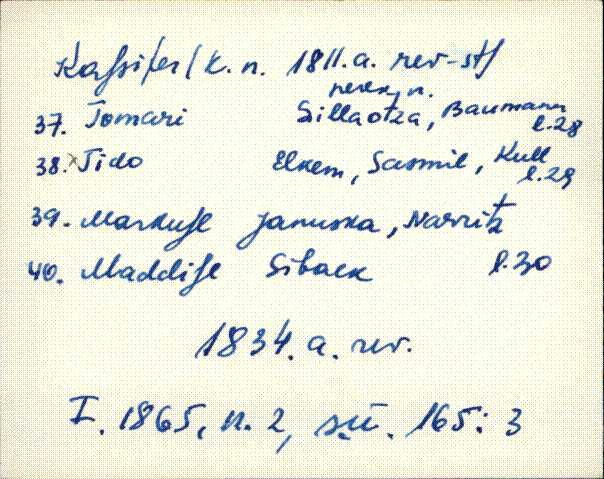 Kassifer/k.n. 1811.a. rev-st/
perek. n.
37. Tomari Sillaotza, Baumann l.28
38.× Tido Elkem, Sasmil, Kull l.29
39. Markuse Januska, Narritz
40. Maddise Siback l.30
1834. a. rev.
I. 1865, n. 2, sü. 165: 3